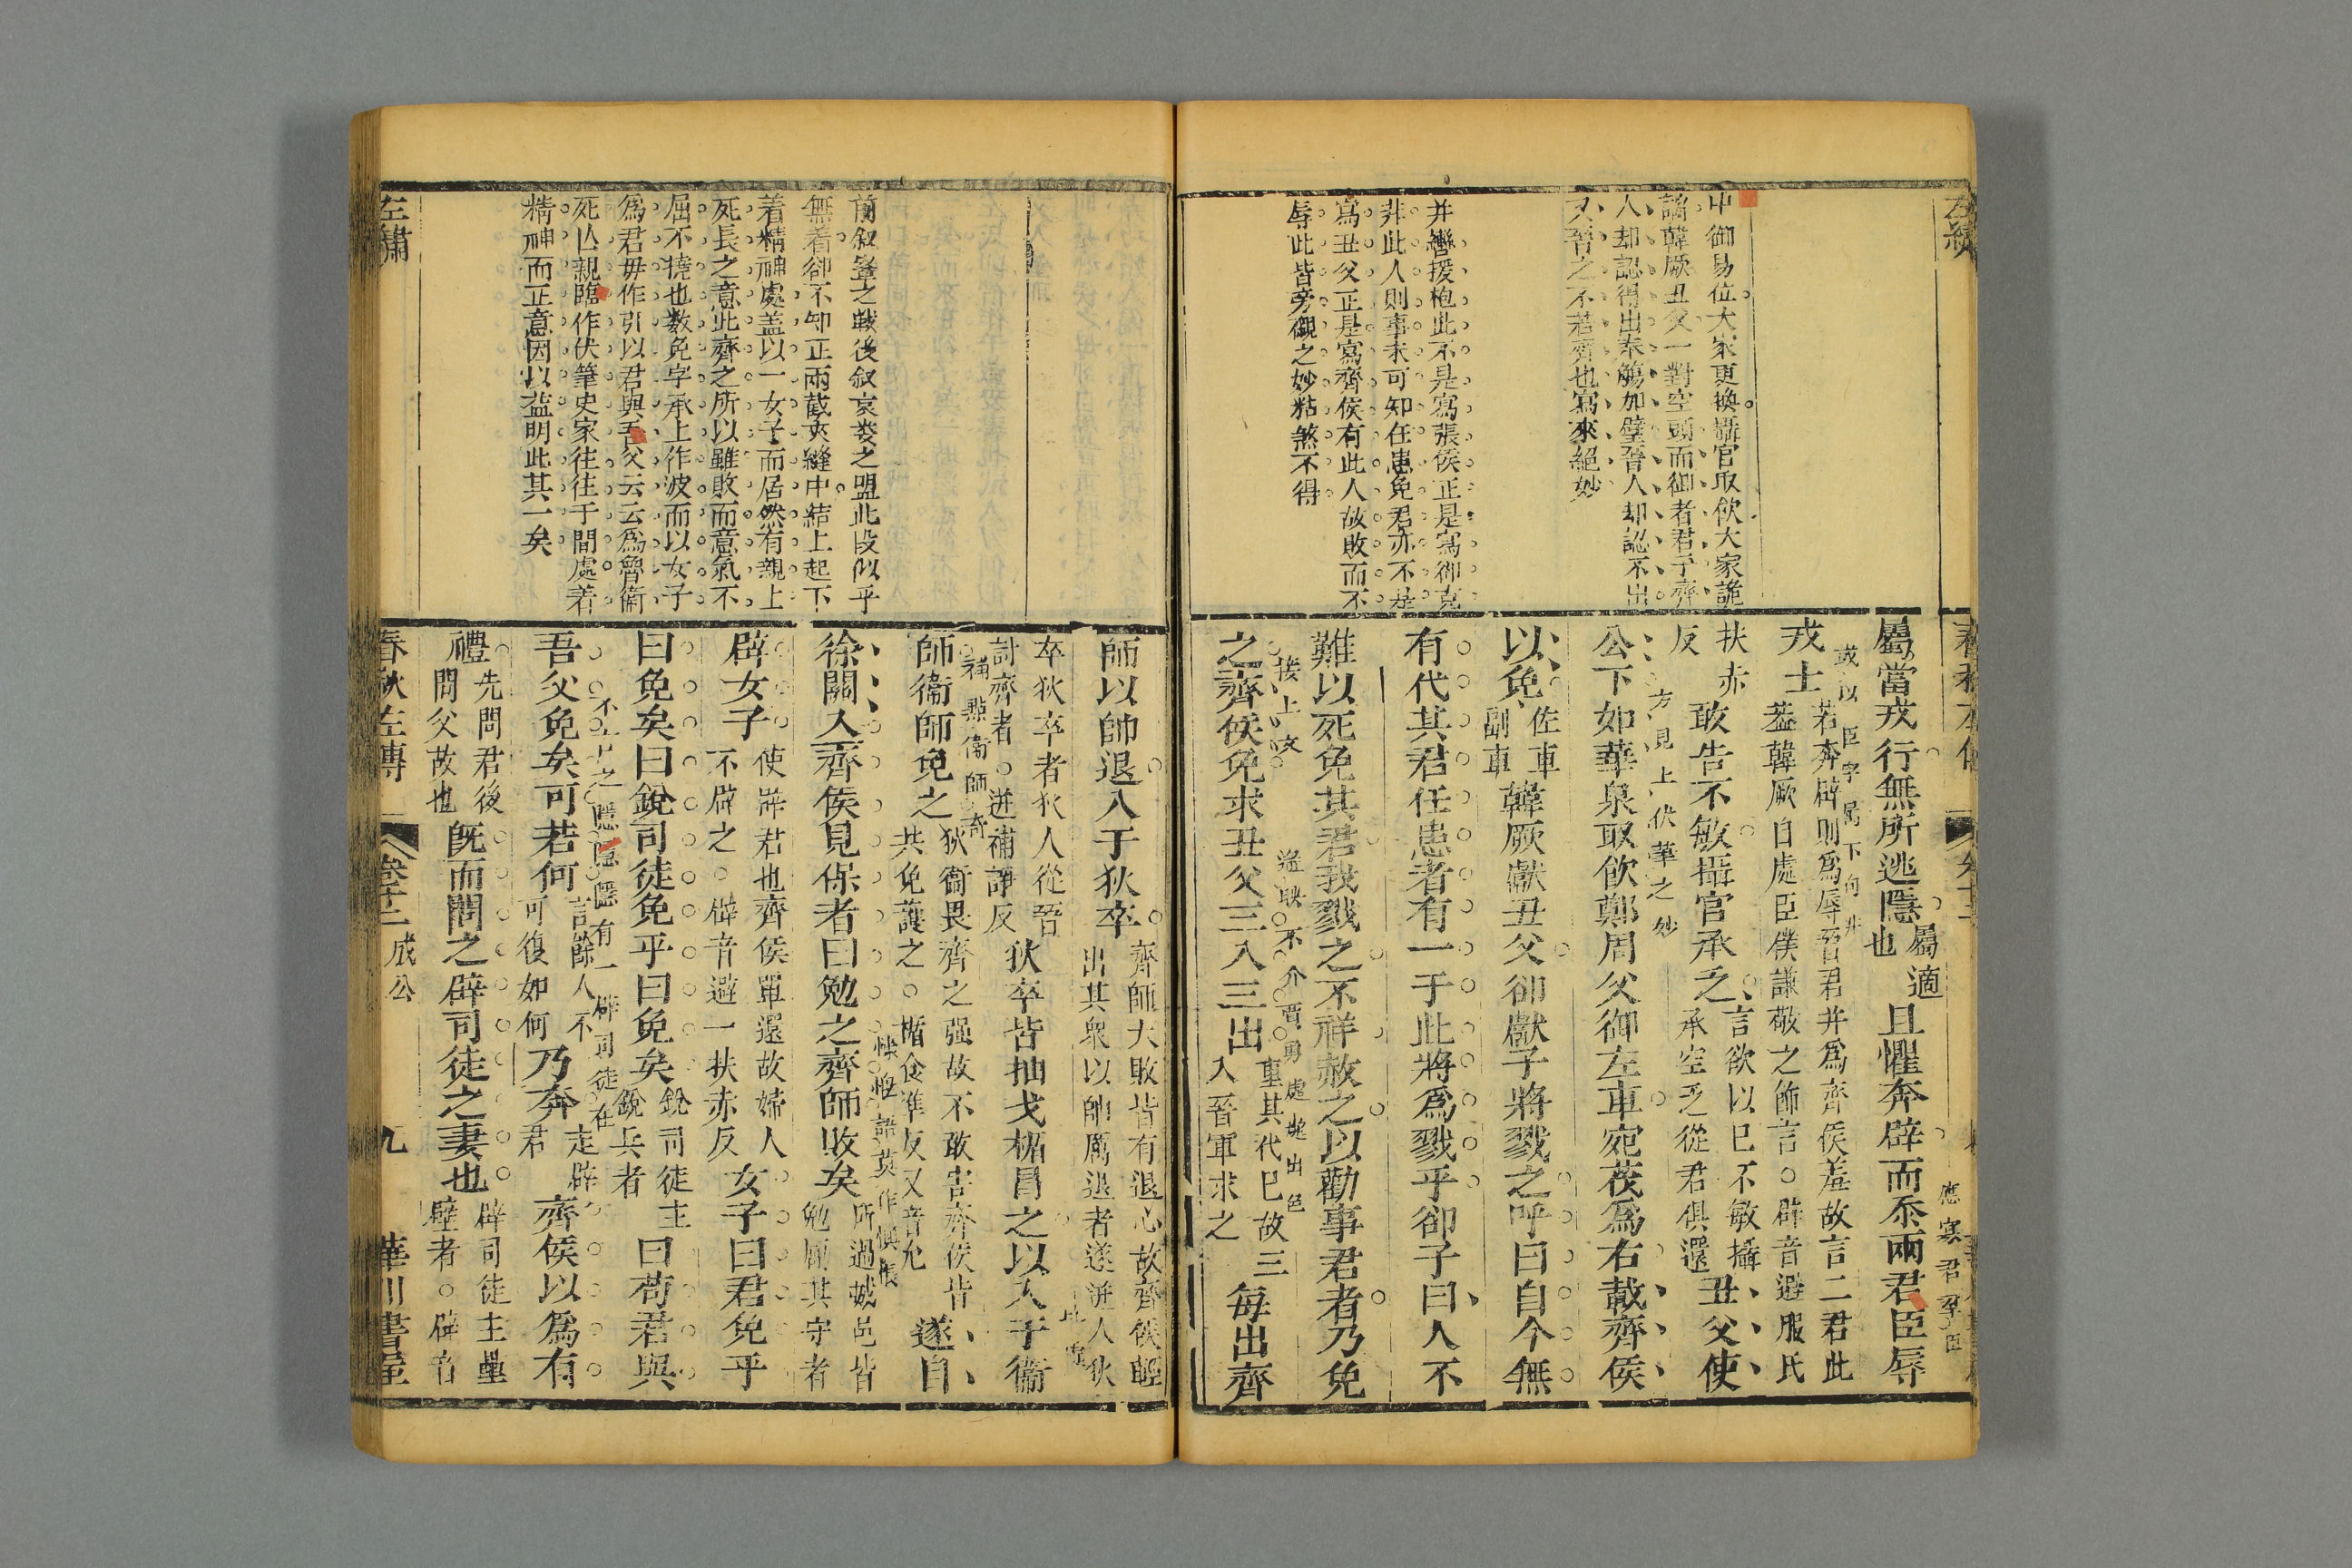 中御易位大家更換攝官取飲大家詭
譎韓厥丑父一對空頭而御者君子齊
人却認得出奉觴加璧晉人却認不出
又晉之不若齊也寫來絕妙
并轡援枹此不是寫張侯正是寫御克
非此人則事未可知任患免君亦不是
寫丑父正是寫齊侯有此人故敗而不
辱此皆旁觀之妙粘煞不得
應寡君羣臣
屬當戎行無所逃隱屬適也且懼奔辟而忝兩君臣辱
或以臣字属下句非
戎士若奔辟則爲辱晉君并爲齊侯羞故言二君此
蓋韓厥自處臣僕謙敬之飾言○辟音避服氏
扶赤反敢告不敏攝官承乏言欲以已不敏攝
承空乏從君俱還丑父使
方見上伏華之妙
公下如華泉取飲鄭周父御左車宛茷爲右載齊侯
以免佐車副車韓厥獻丑父郤獻子將戮之呼曰自今無
有代其君任患者有一于此將爲戮乎郤子曰人不
難以死免其君我戮之不祥赦之以勸事君者乃免
接上文
遙映不介
勇處
出色
之齊侯免求丑父三入三出重其代已故三
入晉軍求之每出齊
前叙鞌之戰後叙袁婁之盟此段似乎
無着卻不知正兩截夾縫中結上起下
着精神處盖以一女子而居然有親上
死長之意此齊之所以雖敗而意氣不
屈不撓也数免字承上作波而以女子
爲君毋作引以君與吾父云云爲魯衛
死亾親暱作伏筆史家往往于間處着
精神而正意因以益明此其一矣
師以帥退入于狄卒齊師大敗皆有退心故齊侯輕
出其衆以帥厲退者遂迸人狄
卒狄卒者狄人從晉
討齊者○迸補諍反狄卒皆抽戈楯冒之以入于衞
補點衞師奇
師衞師免之狄衞畏齊之强故不敢害齊侯皆
共免護之○楯食準反又音允遂自
徐關入齊侯見保者曰勉之齊師敗矣所過城邑皆
勉勵其守者
辟女子使辟君也齊侯單還故婦人
不辟之○辟音避一扶赤反女子曰君免乎
曰免矣曰銳司徒免乎曰免矣銳司徒主
銳兵者曰苟君與
隱隱有一辟司徒在
吾父免矣可若何言餘人不
可復如何乃奔走辟
君齊侯以爲有
禮先問君後
問父故也既而問之辟司徒之妻也辟司徒主壘
壁者○辟音
左繡
春秋左傳
卷十二
成公
九
華川書屋